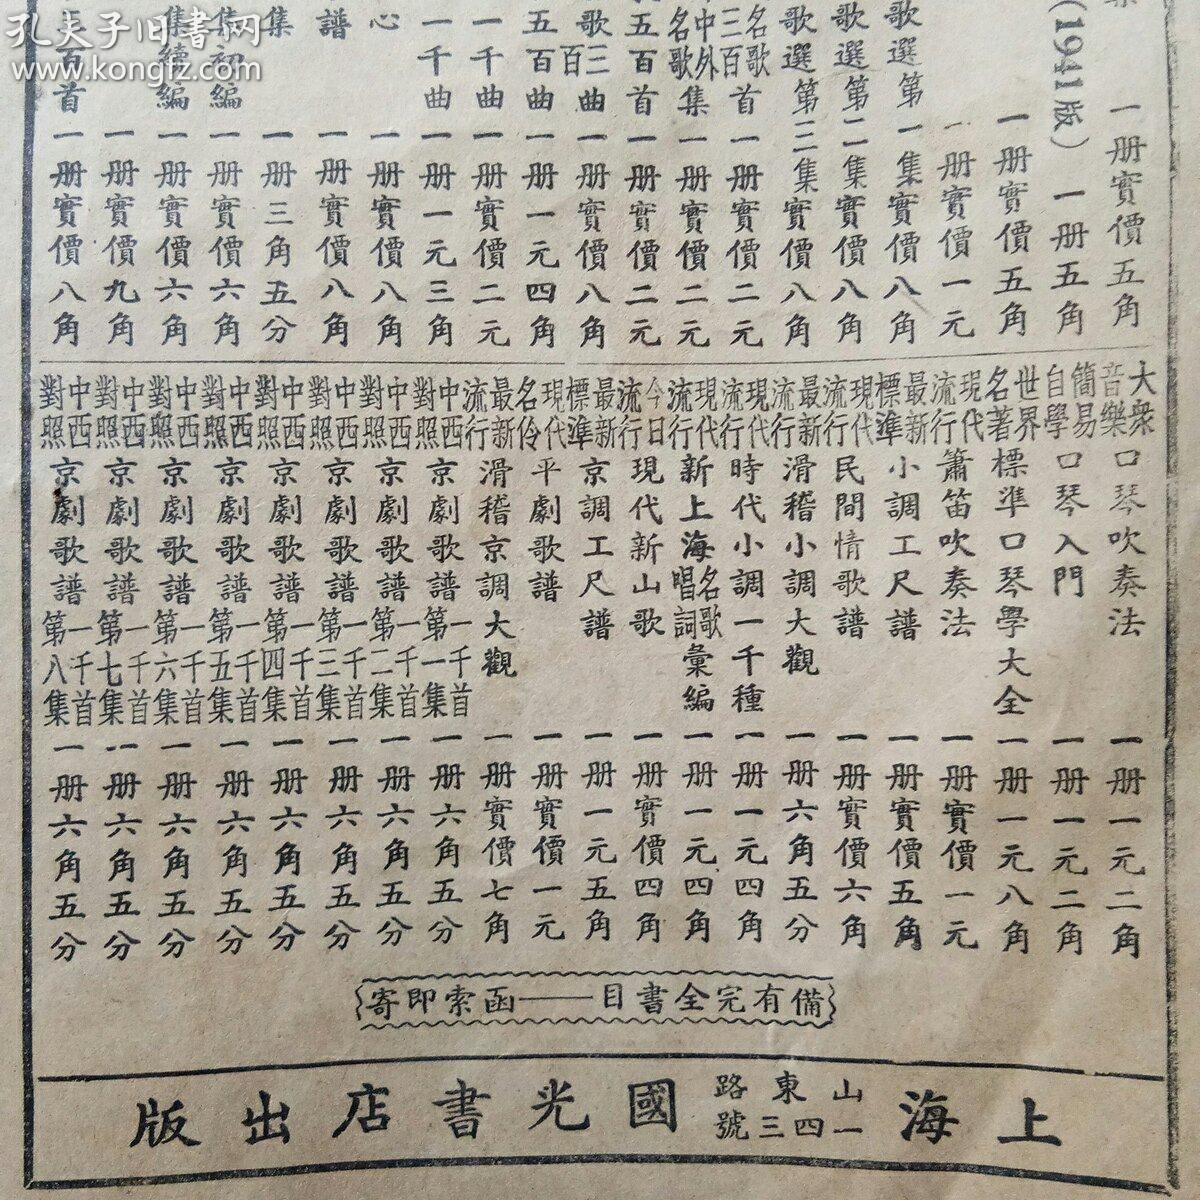 孔夫子旧書网
www.kongfz.com
集 一册實價五角
(1941版) 一册五角
一册實價五角
一册實價一元
歌選第一集實價八角
歌選第二集實價八角
歌選第三集實價八角
名歌三百首一册實價二元
中外名歌集一册實價二元
五百首一册實價二元
歌三百曲一册實價八角
五百曲一册一元四角
一千曲一册實價二元
一千曲一册一元三角
心 一册實價八角
譜 一册實價八角
集 一册三角五分
集初編一册實價六角
集續編一册實價六角
一册實價九角
百首一册實價八角
大衆音樂口琴吹奏法 一册一元二角
簡易自學口琴入門 一册一元二角
世界名著標準口琴學大全 一册一元八角
現代流行簫笛吹奏法 一册實價一元
最新標準小調工尺譜 一册實價五角
現代流行民間情歌譜 一册實價六角
最新流行滑稽小調大觀 一册六角五分
現代流行時代小調一千種 一册一元四角
現代流行新上海名歌唱詞彙編 一册一元四角
今日流行現代新山歌 一册實價四角
最新標準京調工尺譜 一册一元五角
現代名伶平劇歌譜 一册實價一元
最新流行滑稽京調大觀 一册實價七角
中西對照京劇歌譜一千首第一集 一册六角五分
中西對照京劇歌譜一千首第二集 一册六角五分
中西對照京劇歌譜一千首第三集 一册六角五分
中西對照京劇歌譜一千首第四集 一册六角五分
中西對照京劇歌譜一千首第五集 一册六角五分
中西對照京劇歌譜一千首第六集 一册六角五分
中西對照京劇歌譜一千首第七集 一册六角五分
中西對照京劇歌譜一千首第八集 一册六角五分
備有完全書目——函索即寄
上海山東路一四三號國光書店出版